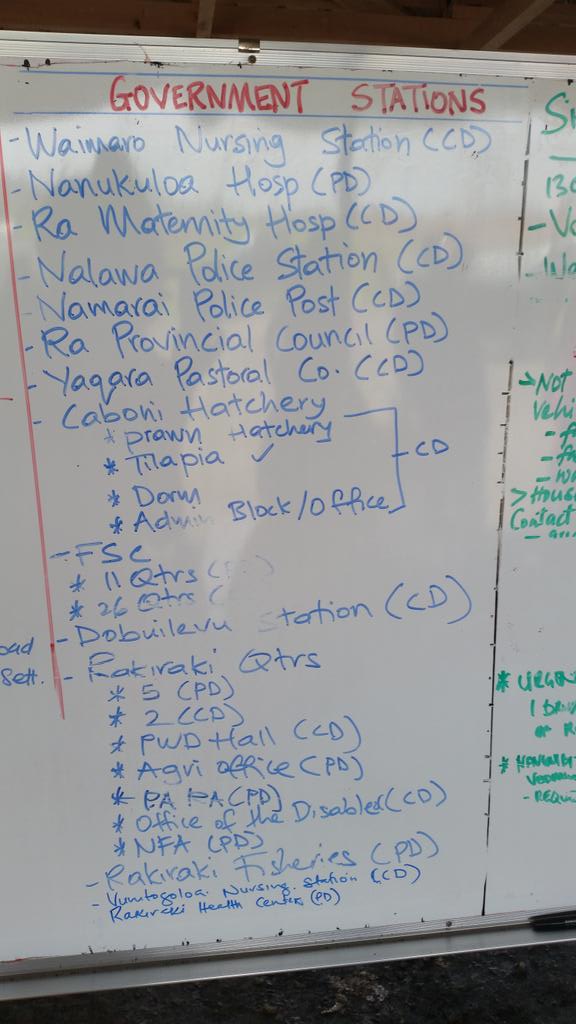 GOVERNMENT STATIONS
- Waimaro Nursing Station (CD)
- Nanukuloa Hosp (PD)
- Ra Maternity Hosp (CD)
- Nalawa Police Station (CD)
- Namarai Police Post (CD)
- Ra Provincial Council (PD)
- Yaqara Pastoral Co. (CD)
- Caboni Hatchery
* prawn Hatchery
* Tilapia ✓
* Dorm
* Admin Block/Office
CD
- FSC
* 11 Qtrs
* 26 Qtrs
- Dobuilevu Station (CD)
- Rakiraki Qtrs
* 5 (PD)
* 2 (CD)
* PWD Hall (CD)
* Agri office (PD)
* PA RA (PD)
* Office of the Disabled (CD)
* NFA (PD)
- Rakiraki Fisheries (PD)
- Vunitogoloa Nursing Station (CD)
- Rakiraki Health Center (PD)
oad
Sett.
Si
130
- Va
> NOT
Vehi
> Hous
Contact
* URGEN
1 DRIV
or R
- REQU